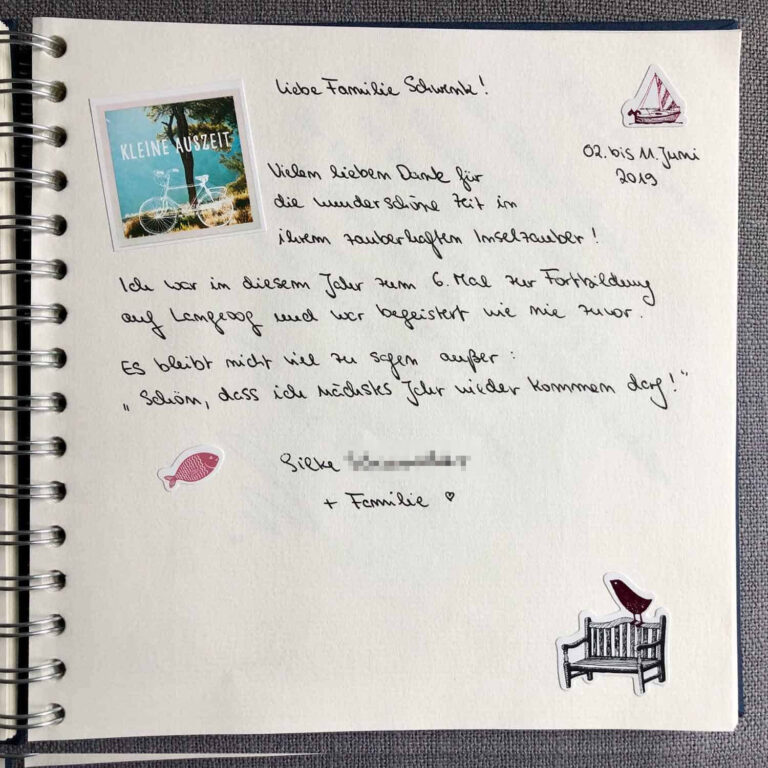 Liebe Familie Schwenk!
KLEINE AUSZEIT
02. bis 11. Juni
2019
Vielen lieben Dank für
die wunderschöne Zeit in
ihrem zauberhaften Inselzauber!
Ich war in diesem Jahr zum 6. Mal zur Fortbildung
auf Langeoog und war begeistert wie nie zuvor.
Es bleibt nicht viel zu sagen außer:
„Schön, dass ich nächstes Jahr wieder kommen darf!"
Silke
+ Familie ♡